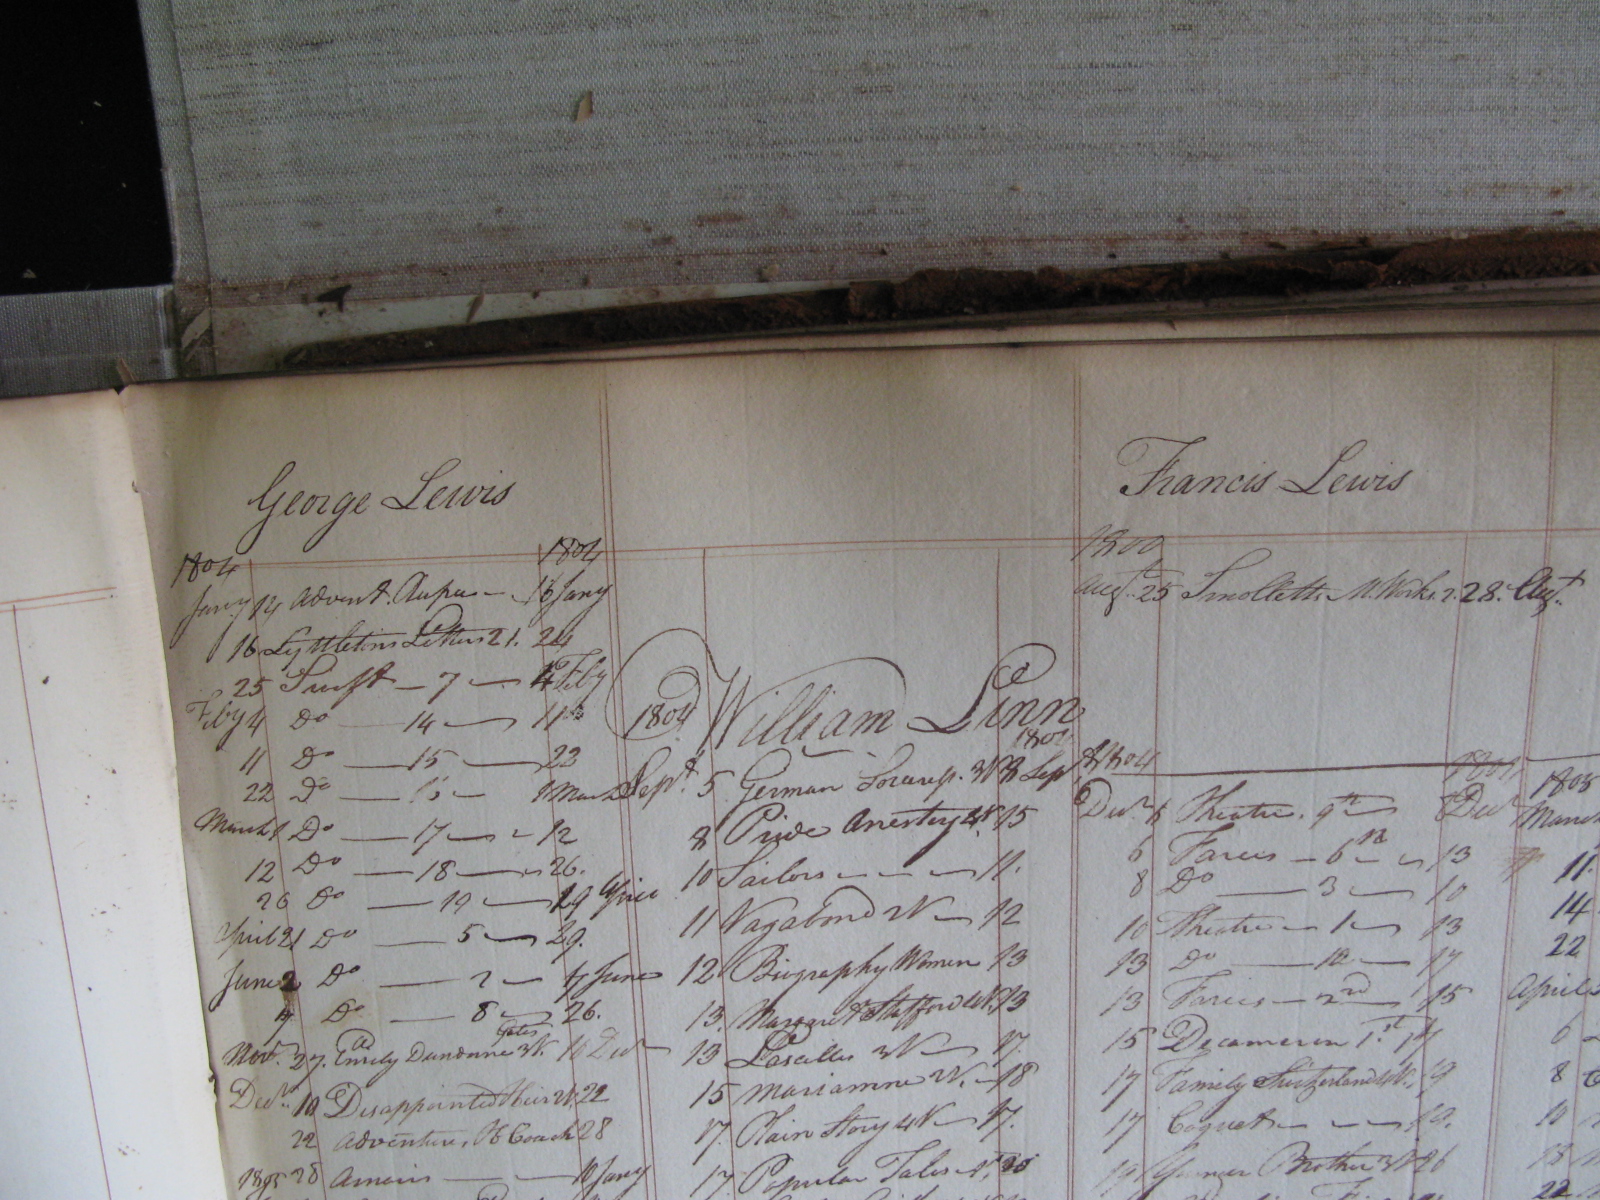 George Lewis
1804 1804
Jany 14 Advent. Rupee — 16 Jany
16 Lyttletons Letters 2v. 24
25 Swift — 7 — 4 Feby
Feby 4 Do — 14 — 11
11 Do — 15 — 22
22 Do — 16 — 1 March
March 1 Do — 17 — 12
12 Do — 18 — 26.
26 Do — 19 — 19 April
April 21 Do — 5 — 29.
June 2 Do — 2 — 4 June
4 Do — 8 — 26.
Novr. 27. Emily Dundorne 3V. 10 Decr
Decr. 10 Disappointed Heir 2V. 22
22 Adventure, H Coach 28
1805 28 Amours — 10 Jany
1804 William Linn
1804
Sept. 5 German 3V 8 Sep
8 Pride Ancestry 4V. 15
10 Sailors — — — 11.
11 Vagabond 2V — 12
12 Biography Women 13
13. Margaret Stafford 4V. 13
13 Lascelles 3V — 17.
15 Mariamne 2V. — 18
17. Plain Story 4V — 17.
17 Popular Tales
Francis Lewis
1800
Augt. 25 Smolletts M. Works. 2. 28. Augt.
1804
Decr. 5 Theatre. 9th — 8 Decr
6 Farces — 6th — 13
8 Do — 3 — 10
10 Theatre — 1 — 13
13 Do — 12 — 17
13 Farces — 2nd — 15
15 Decameron 1st. 17
17 Family 19
17 Coquet — — — 19.
19 Younger Brother 3V 26
1805
March
11.
14
22
April
6
8
10
18
22